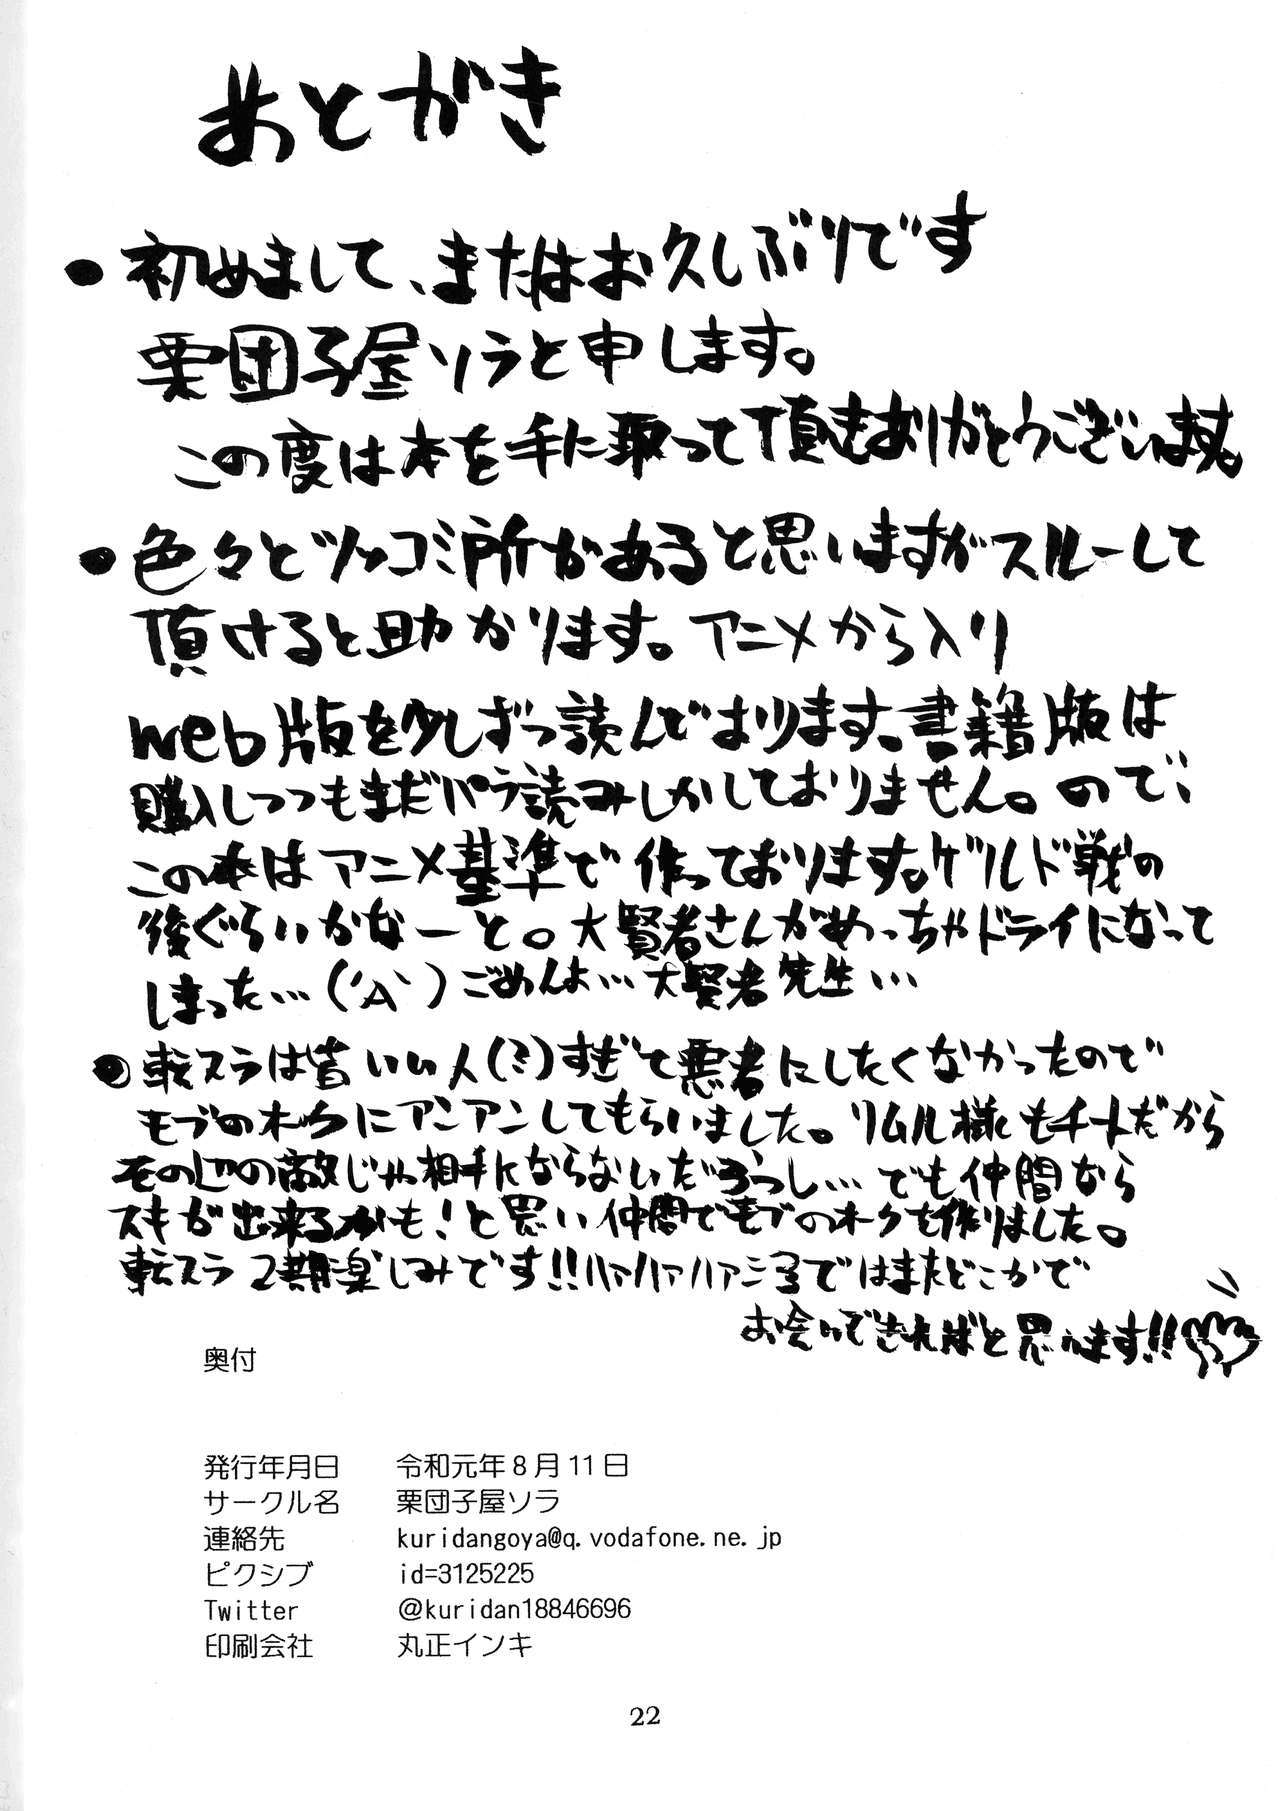 あとがき
・初めまして、またはお久しぶりです
栗団子屋ソラと申します。
この度は本を手に取って頂きありがとうございます。
・色々とツッコミ所があると思いますがスルーして
頂けると助かります。アニメから入り
web版を少しずつ読んでおります。書籍版は
購入しつつもまだパラ読みしかしておりません。ので、
この本はアニメ基準で作っております。ゲルド戦の
後ぐらいかなーと。大賢者さんがめっちゃドライになって
しまった…('A`)ごめんよ…大賢者先生…
・転スラは皆いい人(ミ)すぎて悪者にしたくなかったので
モブのオークにアンアンしてもらいました。リムル様もチートだから
その辺の敵じゃ相手にならないだろうし…でも仲間なら
スキが出来るかも!と思い仲間でモブのオークを作りました。
転スラ2期楽しみです!!ハァハァハァ ではまたどこかで
お会いできればと思います!!
奥付
発行年月日 令和元年8月11日
サークル名 栗団子屋ソラ
連絡先 kuridangoya@q.vodafone.ne.jp
ピクシブ id=3125225
Twitter @kuridan18846696
印刷会社 丸正インキ
22